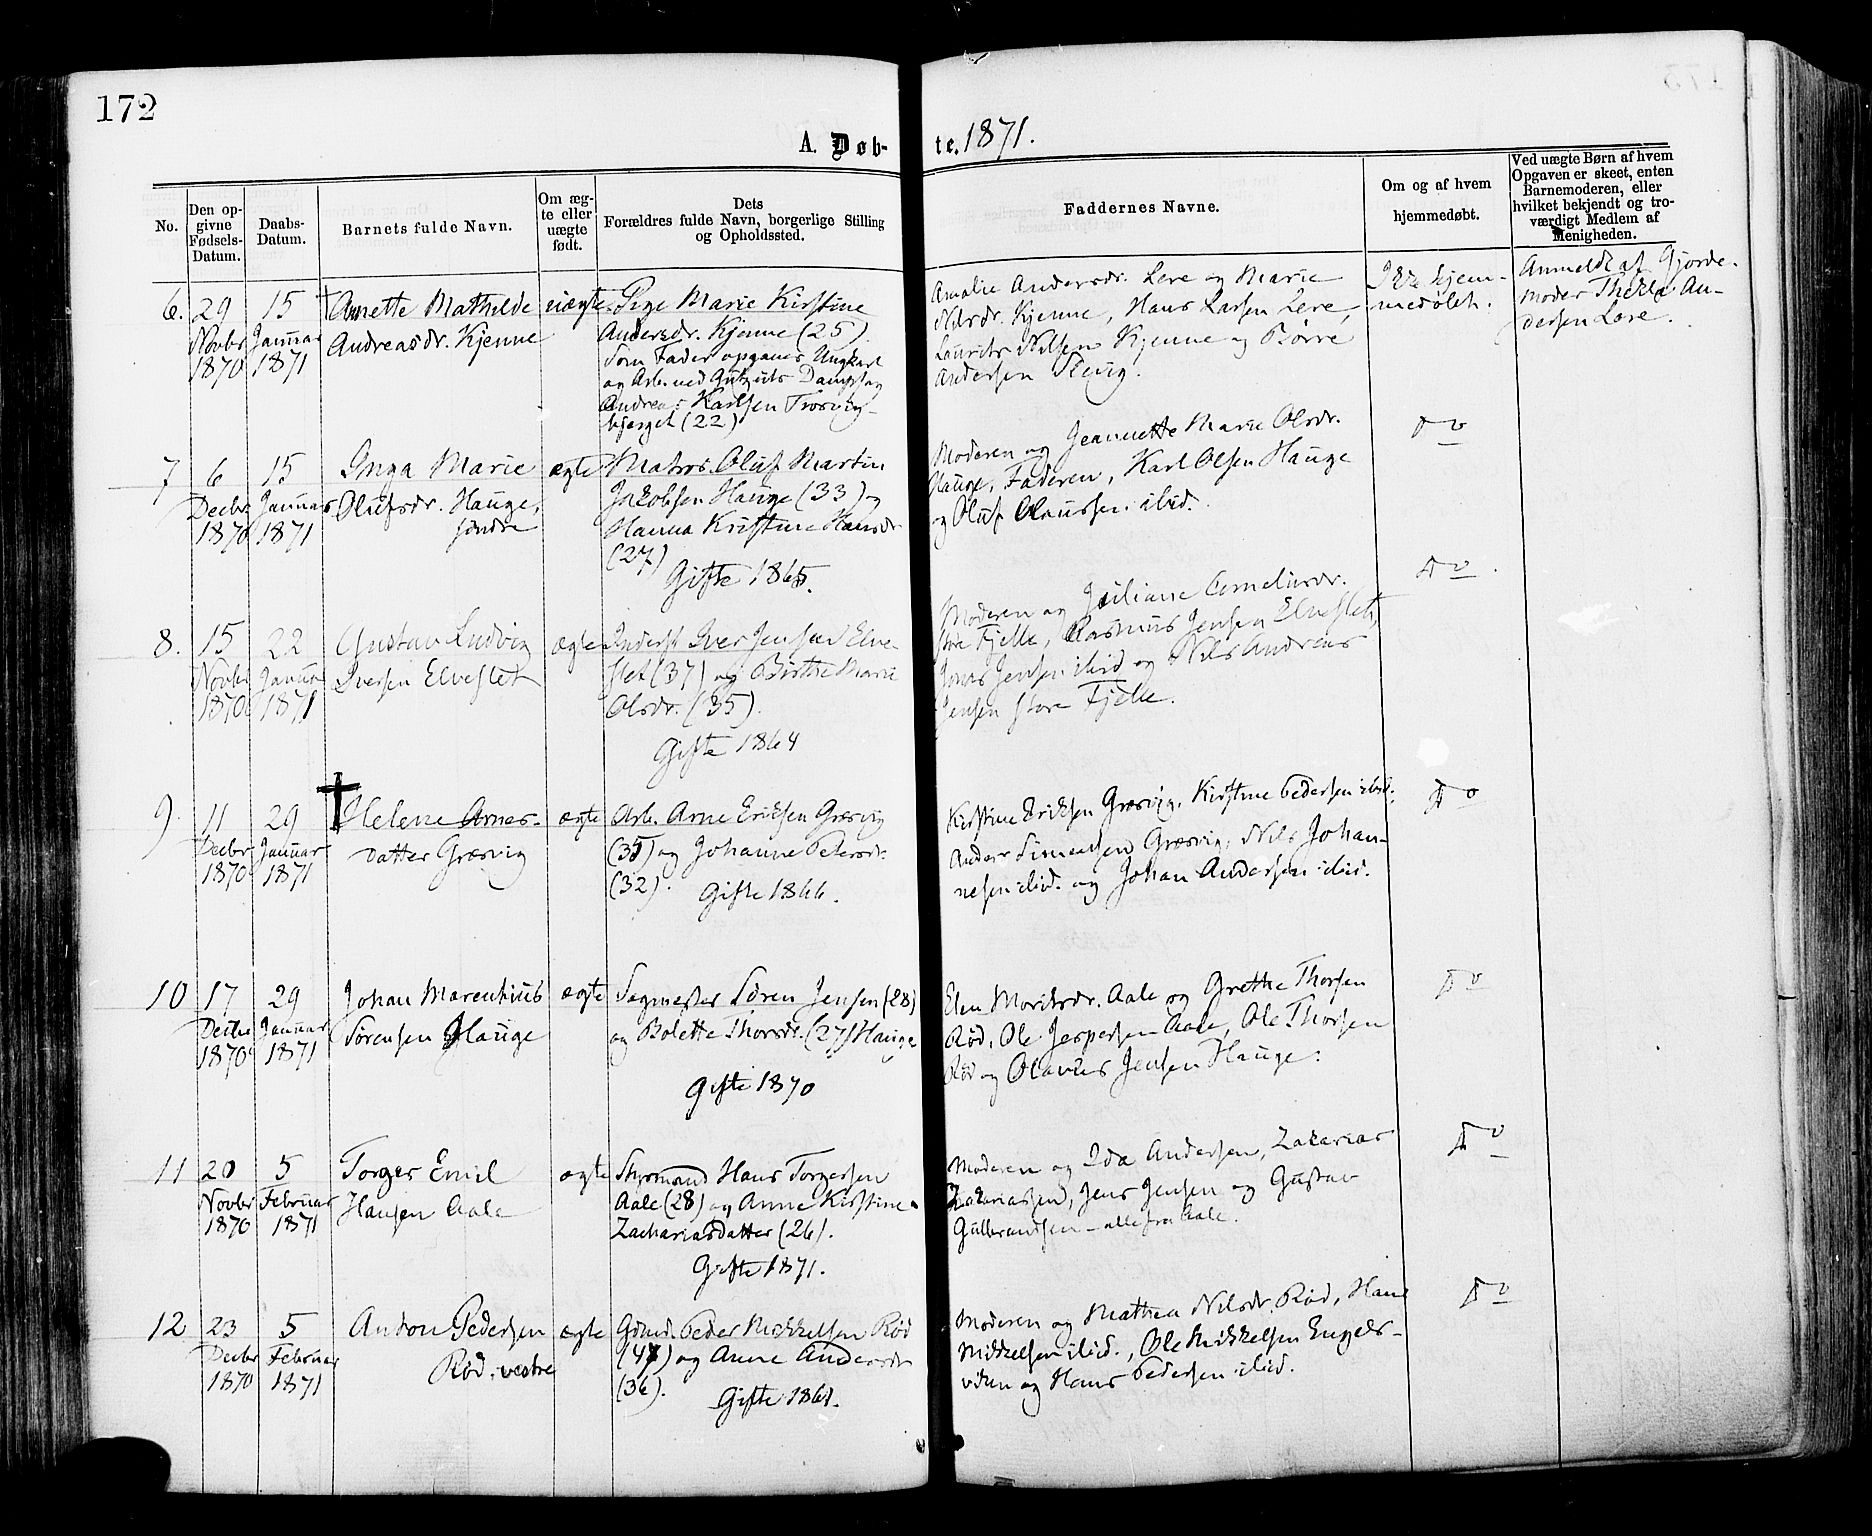 172
A. Døb-
te. 1871.
No.
Den op-
givne
Fødsels-
Datum.
Daabs-
Datum.
Barnets fulde Navn.
Om æg-
te eller
uægte
født.
Dets
Forældres fulde Navn, borgerlige Stilling
og Opholdssted.
Faddernes Navne.
Om og af hvem
hjemmedøbt.
Ved uægte Børn af hvem
Opgaven er skeet, enten
Barnemoderen, eller
hvilket bekjendt og tro-
værdigt Medlem af
Menigheden.
6.
29
Novbr
1870
15
Januar
1871
† Annette Mathilde
Andreasdr. Kjenne
uægte
Pige Marie Kirstine
Andersdr. Kjenne (25).
Som Fader opgaves Ungkarl
og Arb. ved Gutzeits Dampsag
Andreas Karlsen Trosvig-
bjerget (22)
Amalie Andersdr. Lere og Marie
Nilsdr. Kjenne, Hans Larsen Lere,
Laurits Nilsen Kjenne og Børre
Andersen
Ikke hjem-
medøbt.
Anmeldt af Gjorde-
moder Thekla An-
dersen Lere.
7
6
Decbr
1870
15
Januar
1871
Inga Marie
Olufsdr. Hauge,
søndre
ægte
Matros Oluf Martin
Jakobsen Hauge (33) og
Hanna Kristine Hansdr
(27)
Gifte 1865.
Moderen og Jeannette Marie Olsdr.
Hauge, Faderen, Karl Olsen Hauge
og Oluf Olaussen ibid.
Do
8.
15
Novbr
1870
22
Januar
1871
Gustav Ludvig
Iversen Elveslet
ægte
Inderst Iver Jensen Elve-
slet (37) og Birthe Marie
Olsdr. (35).
Gifte 1864
Moderen og Juliane Corneliusdr.
store Fjelle, Rasmus Jensen Elveslet,
Jonas Jensen ibid og Nils Andreas
Jensen store Fjelle.
Do
9.
11
Decbr
1870
29
Januar
1871
† Helene Arnes-
datter Græsvig
ægte
Arb. Arne Eriksen Græsvig
(35) og Johanne Petersdr.
(32).
Gifte 1866.
Kirstine Eriksen Græsvig, Kirstine Pedersen ibid.,
Anders Simensen Græsvig, Nils Johan-
nesen ibid. og Johan Andersen ibid.
Do
10
17
Decbr
1870
29
Januar
1871
Johan Marentius
Sørensen Hauge
ægte
Sagmester Søren Jensen (28)
og Bolette Thorsdr. (27) Hauge
Gifte 1870
Elen Moritsdr. Aale og Grethe Thorsen
Rød, Ole Jespersen Aale, Ole Thorsen
Rød og Olavus Jensen Hauge.
Do
11
20
Novbr
1870
5
Februar
1871
Torger Emil
Hansen Aale
ægte
Styrmand Hans Torgersen
Aale (28) og Anne Kirstine
Zachariasdatter (26).
Gifte 1871.
Moderen og Ida Andersen, Zakarias
Zakariassen, Jens Jensen og Gustav
Gulbrandsen - alle fra Aale.
Do
12
23
Decbr
1870
5
Februar
1871
Anton Pedersen
Rød, vestre
ægte
Gbrd. Peder Mikkelsen Rød
(47) og Anne Andersdr
(36).
Gifte 1861.
Moderen og Mathea Nilsdr. Rød, Hans
Mikkelsen ibid., Ole Mikkelsen Engels-
viken og Hans Pedersen ibid.
Do